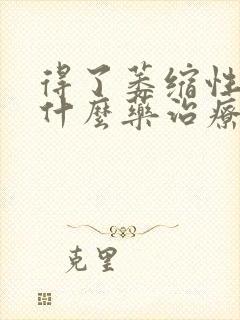 得了萎缩性
什麼藥治療
克里